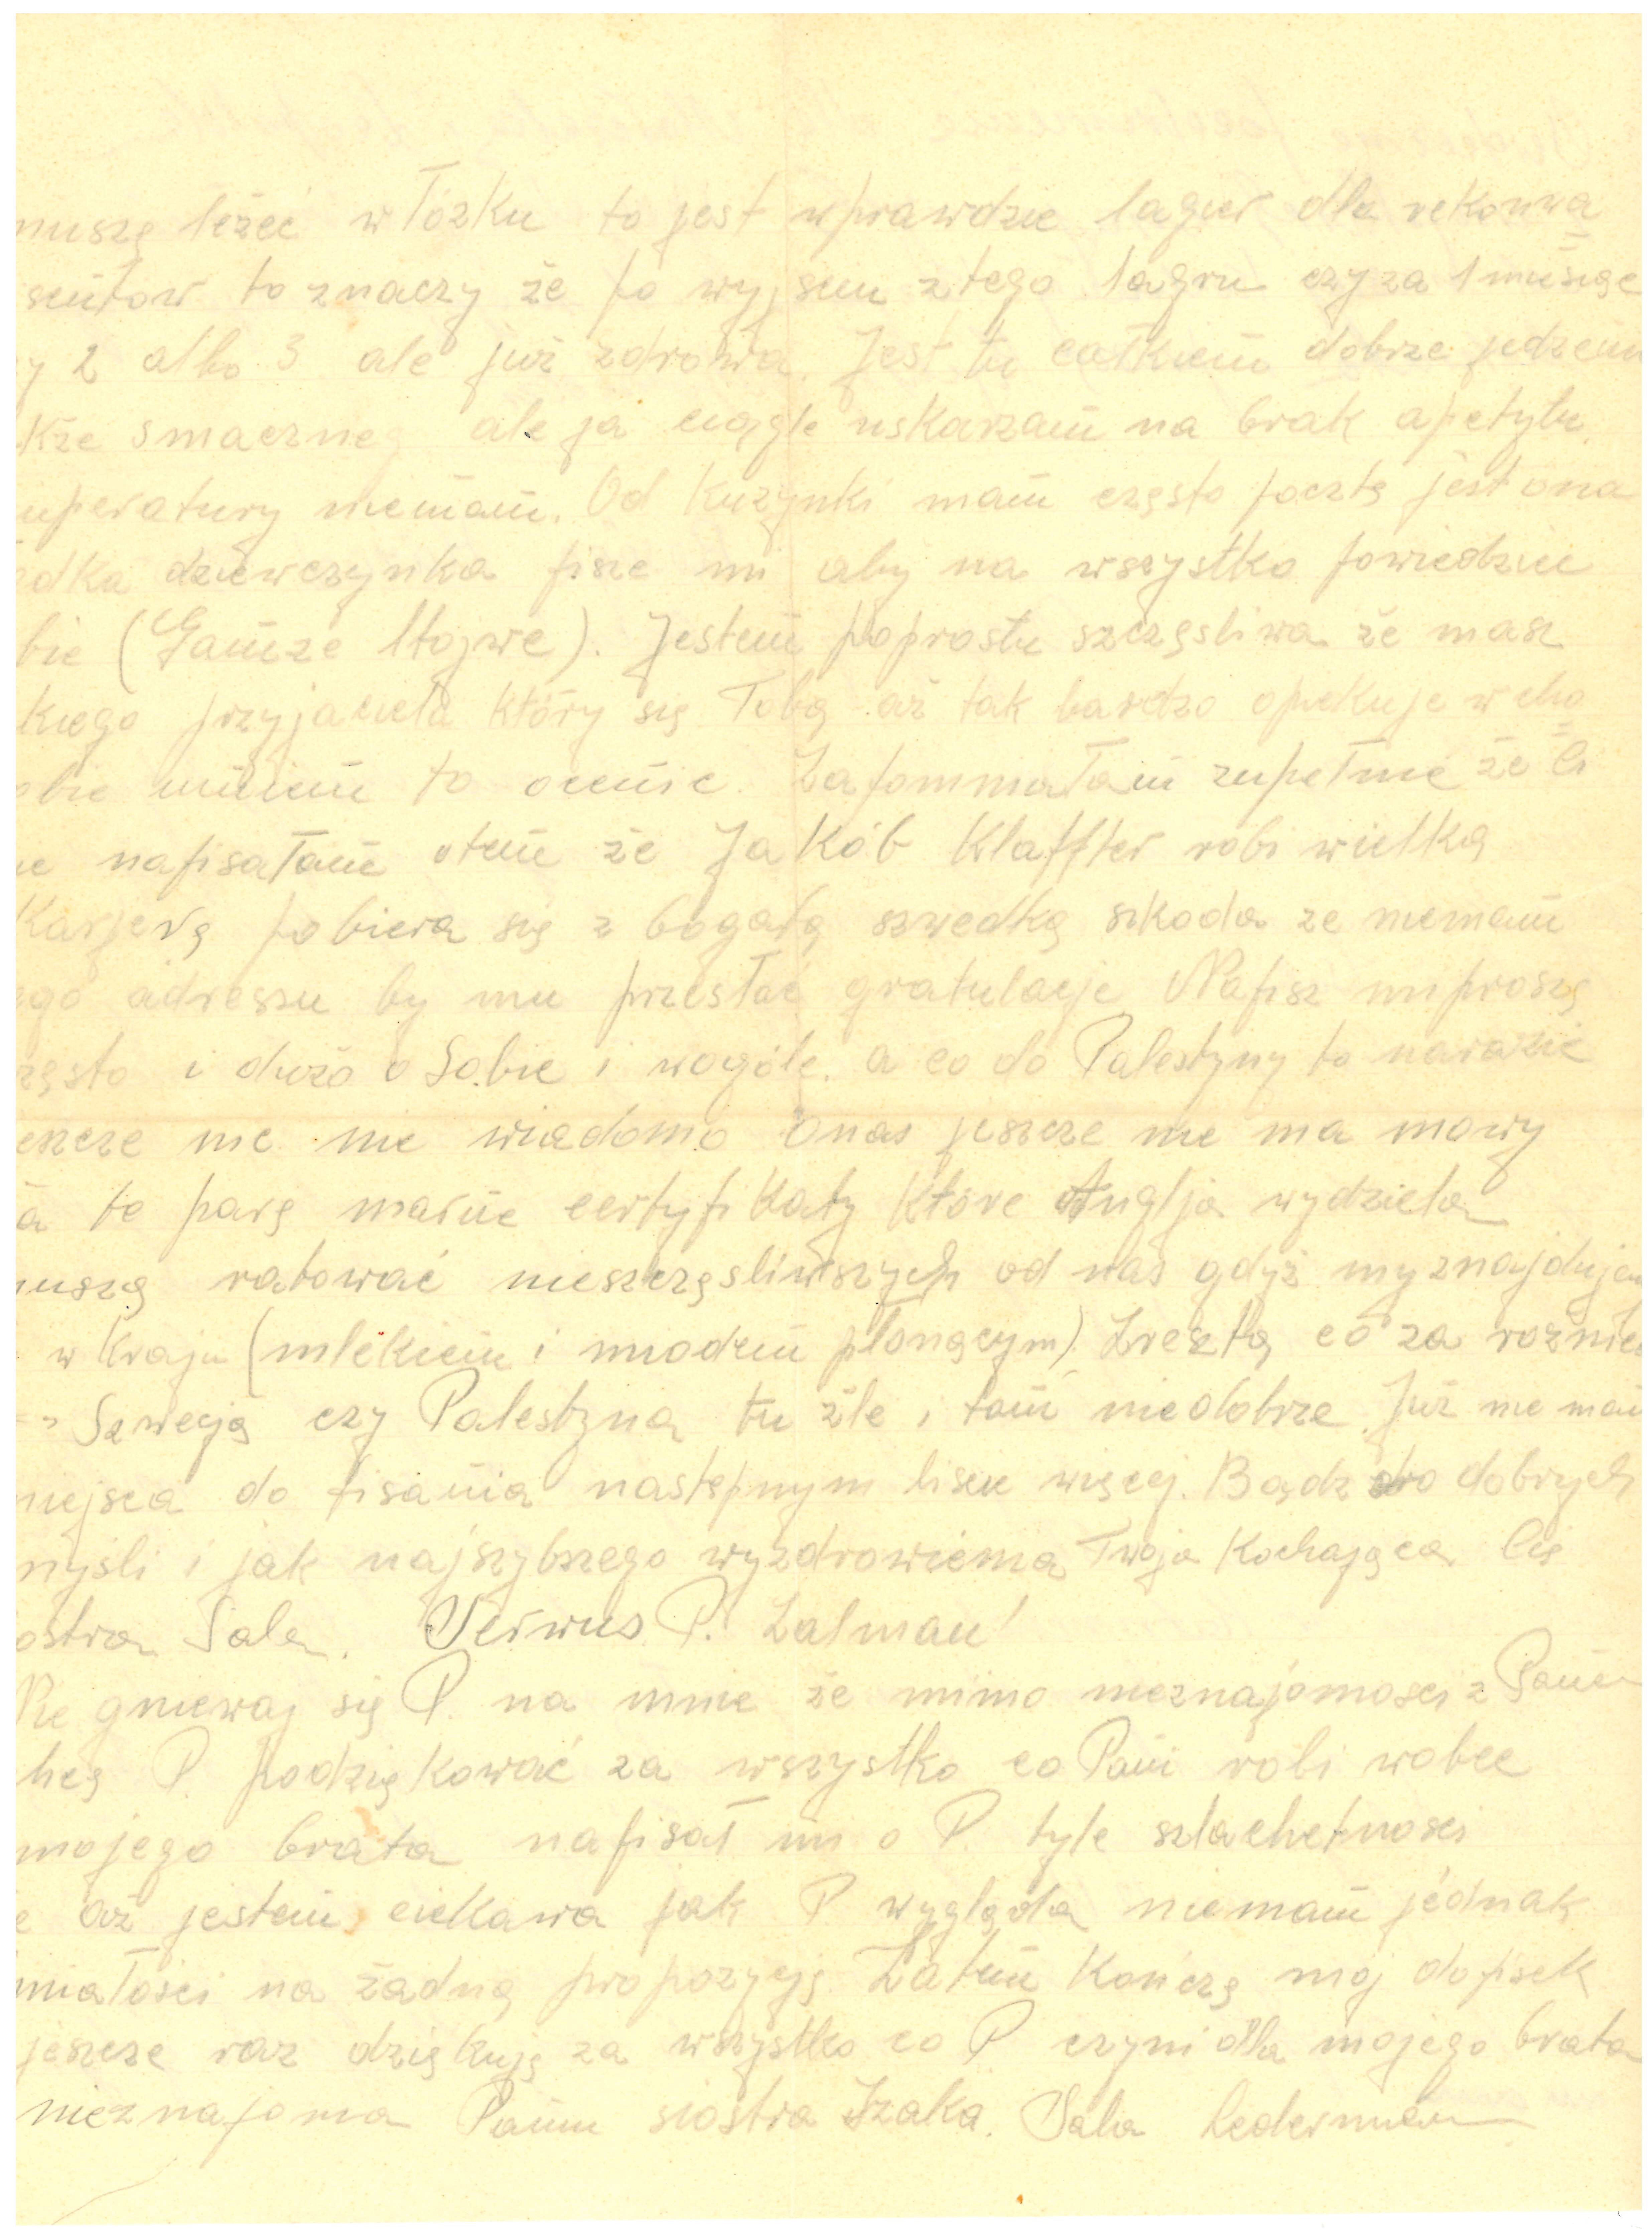 muszę leżeć w łóżku to jest wprawdzie lagier dla rekonwa
sentow to znaczy że po wyjsciu z tego lagru czy za 1 miesiąc
y 2 albo 3 ale już zdrowa. Jest tu całkiem dobrze jedzenie
kże smaczne ale ja ciągle uskarżam na brak apetytu.
mperatury niemam. Od Kuzynki mam często pocztę jest ona
adka dziewczynka pisze mi aby na wszystko powiedziec
bie (Gamze ltojwe). Jestem poprostu szczęsliwa że masz
kiego przyjaciela który się Tobą aż tak bardzo opiekuje w cho
obie umiem to ocenic. Zapomniałam zupełnie że Ci
ie napisałam otem że Jakób Klaffter robi wielką
Karjerę pobiera się z bogatą szwedką szkoda ze niemam
ego adressu by mu przesłać gratulacje Napisz mi proszę
zęsto i dużo o Sobie i wogóle. a co do Palestyny to narazie
eszcze nic nie wiadomo Onas jeszcze nie ma mowy
a te parę marne certyfikaty Które Anglja wydziela
muszą ratować nieszczęsliwszych od nas gdyż my znajdujem
w Kraju (mlekiem i miodem płonącym) Zresztą co za roznica
Szwecją czy Palestyna tu źle i tam niedobrze. Już nie mam
miejsca do pisania nastepnym liscie więcej. Bądz do dobrych
myśli i jak najszybszego wyzdrowienia Twoja Kochająca Cię
ostra Sala. Serwus P. Zalman!
Nie gniewaj się P. na mnie że mimo nieznajomosci z Panem
chcę P. podziękować za wszystko co Pan robi wobec
mojego brata napisał mi o P. tyle szlachetnosci
e aż jestem ciekawa jak P wygląda niemam jednak
miałosci na żadną propozycję Zatem Kończę moj dopisek
jeszcze raz dziękuję za wszystko co P czyni dla mojego brata
nieznajoma Panu siostra Izaka. Sala Lederman